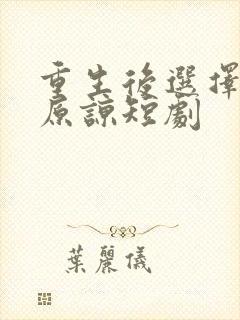 重生後選擇
原諒短劇
葉麗儀